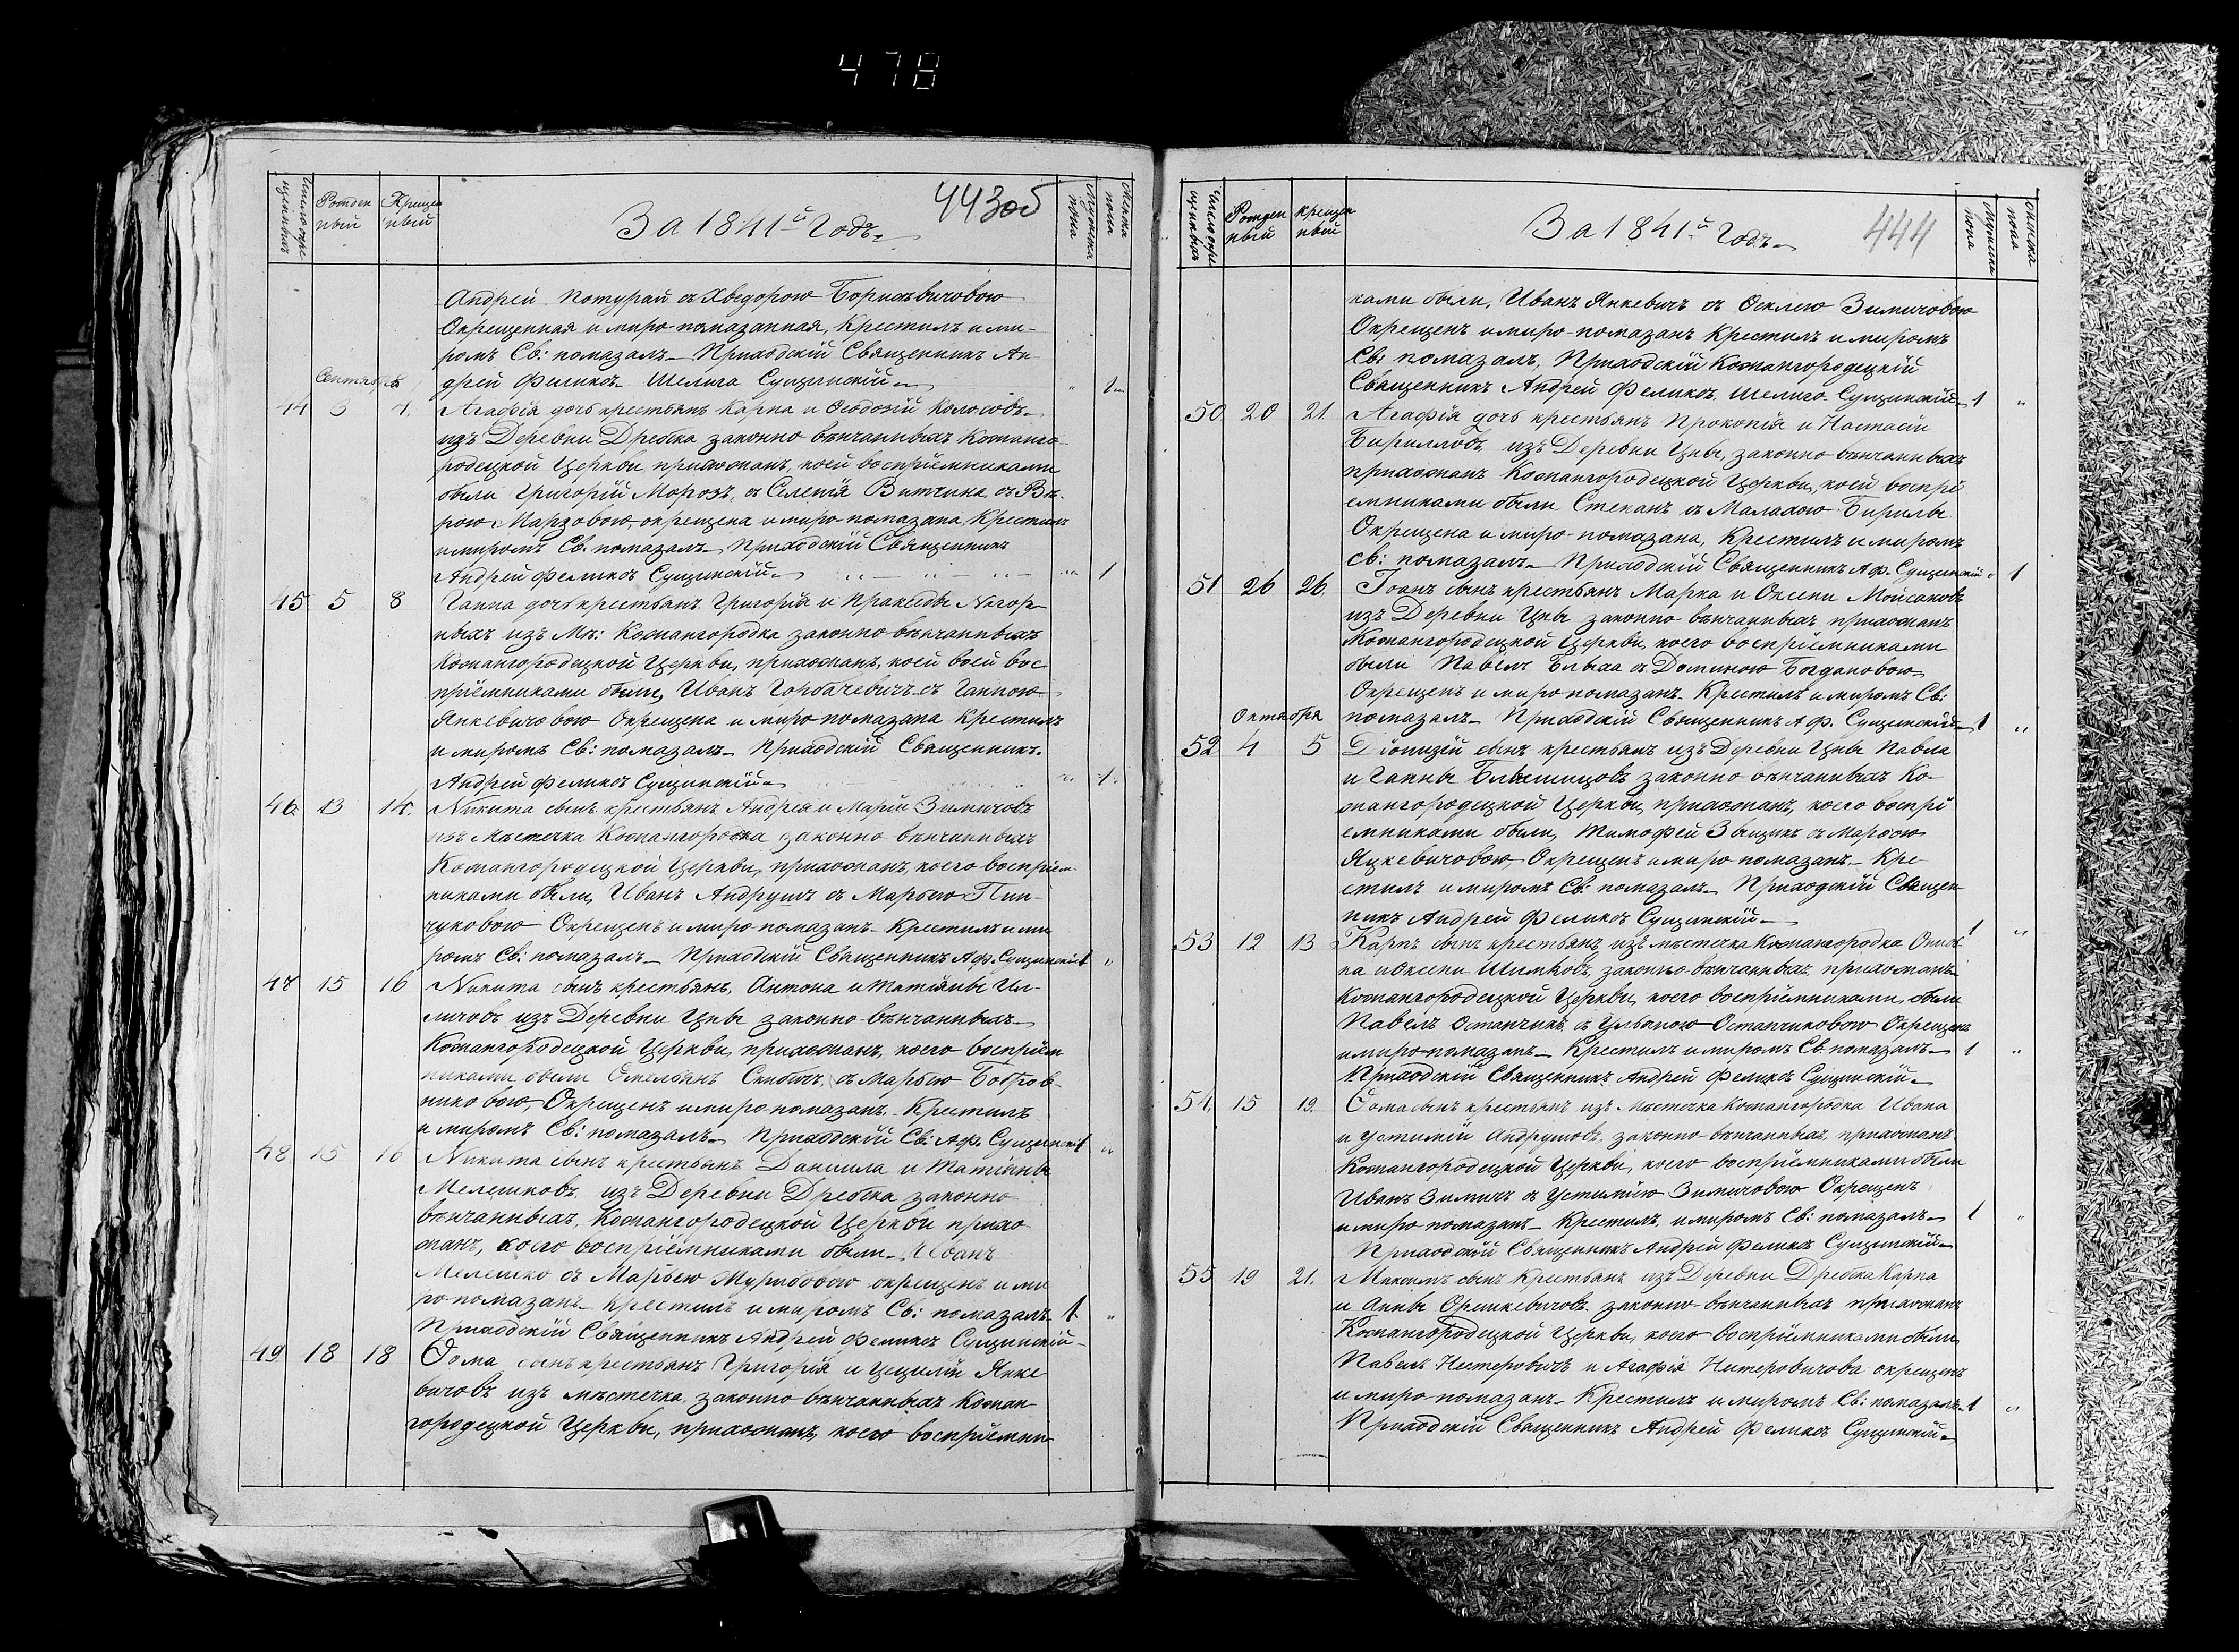 478
Число окре-
щенныхъ
Рожден
ный
Крещен
ный
За 1841й Годъ
443об
Мужеска
пола
Женска
пола
Андрей Потурай съ Хведорою Борисевичовою
Окрещенная и миро-помазанная, Крестилъ и ми-
ромъ Св: помазалъ Приходскій Священникъ Ан-
Сентября
дрей Феликсъ Шелига Сущинскій 1
44 3 4. Агафія дочь крестьянъ Карпа и Ѳеодосіи Колосовъ
изъ Деревни Дребска законно вѣнчанныхъ Кожанго-
родецкой Церкви прихожанъ, коей воспріемниками
были Григорій Морозъ, съ Вѣ-
рою окрещена и миро помазана Крестилъ
и миромъ Св. помазалъ Приходскій Священникъ
Андрей Феликсъ Сущинскій 1
45 5 8 Ганна дочь крестьянъ Григорія и Праксѣды Нагор-
ныхъ изъ Мѣ: Кожангородка законно вѣнчанныхъ
Кожангородецкой Церкви, прихожанъ, коей вос
пріемниками были, Иванъ Горбачевичъ съ Ганною
Янкевичовою Окрещена и миро помазана Крестилъ
и миромъ Св: помазалъ Приходскій Священникъ
Андрей Феликсъ Сущинскій 1.
46 13 14. Никита сынъ крестьянъ Андрея и Маріи Зимичовъ
изъ Мѣстечка Кожангородка законно вѣнчанныхъ
Кожангородецкой Церкви, прихожанъ, коего воспріем-
никами были, Иванъ Андрушъ съ Марьею Пин-
чуковою Окрещенъ и миро помазанъ Крестилъ и ми
ромъ Св: помазалъ Приходскій Священникъ А Ф. Сущинскій 1 "
47 15 16 Никита сынъ крестьянъ, Антона и Татіяны Ил-
личовъ изъ Деревни Цны законно вѣнчанныхъ
Кожангородецкой Церкви, прихожанъ, коего воспріем
никами были Омельянъ Скибичъ, съ Марьею Бобров-
никовою, Окрещенъ и миро помазанъ, Крестилъ
и миромъ Св: помазалъ Приходскій Св: А.Ф. Сущинскій 1 "
48 15 16 Никита сынъ крестьянъ Даніила и Татіяны
Мелешковъ изъ Деревни Дребска законно
вѣнчанныхъ, Кожангородецкой Церкви прихо
жанъ, коего воспріемниками были Иванъ
Мелешко съ Марьею окрещенъ и ми
ро помазанъ крестилъ и миромъ Св: помазалъ 1 "
Приходскій Священникъ Андрей Феликсъ Сущинскій
49 18 18 Ѳома сынъ крестьянъ Григорія и Уцуліи Янке
вичовъ изъ мѣстечка, законно вѣнчанныхъ Кожан-
городецкой Церкви, прихожанъ, коего воспріемни
Число окре
щенныхъ
Рожден
ный
крещен
ный
За 1841й Годъ
444
Мужеска
пола
Женска
пола
ками были, Иванъ Янкевичъ съ Ѳеклею Зимичовою
Окрещенъ и миро-помазанъ Крестилъ и миромъ
Св: помазалъ, Приходскій Кожангородецкій
Священникъ Андрей Феликсъ Шелиго Сущинскій 1 "
50 20 21 Агафія дочь крестьянъ Прокопія и Настасіи
Бирилловъ изъ Деревни Цны, законно вѣнчанныхъ
прихожанъ Кожангородецкой Церкви, коей воспрі
емниками были Степанъ съ Малахою Бирилы
Окрещена и миро-помазана, Крестилъ и миромъ
св: помазалъ Приходскій Священникъ А Ф. Сущинскій " 1
51 26 26. Іоанъ сынъ крестьянъ Марка и Оксени Мойсаковъ
изъ Деревни Цны законно вѣнчанныхъ прихожанъ
Кожангородецкой Церкви, коего воспріемниками
были Павелъ Блыха съ Доминою Богдановою
Окрещенъ и миро помазанъ Крестилъ и миромъ Св:
Октября
помазалъ Приходскій Священникъ А Ф. Сущинскій 1 "
52 4 5 Діонизій сынъ крестьянъ изъ Деревни Цны Павла
и Ганны законно вѣнчанныхъ Ко-
жангородецкой Церкви, прихожанъ, коего воспрі
емниками были, Тимофей Звыщикъ съ Марѳою
Яцкевичовою, Окрещенъ и миро помазанъ Кре-
стилъ и миромъ Св: помазалъ Приходскій Священ
никъ Андрей Феликсъ Сущинскій 1 "
53 12 13 Карпъ сынъ крестьянъ изъ мѣстечка Кожангородка
и Оксени законно вѣнчанныхъ, прихожанъ
Кожангородецкой Церкви, коего воспріемниками, были
Павелъ Останчикъ съ Ульяною Останчиковою Окрещенъ
и миро помазанъ Крестилъ и миромъ Св помазалъ 1 "
Приходскій Священникъ Андрей Феликсъ Сущинскій
54 15 19. Ѳома сынъ крестьянъ изъ Мѣстечка Кожангородка Ивана
и Устиміи Андрушовъ, законно вѣнчанныхъ прихожанъ
Кожангородецкой Церкви, коего воспріемниками были
Иванъ Зимичъ съ Устиміею Зимичовою Окрещенъ
и миро помазанъ Крестилъ и миромъ Св: помазалъ 1 "
Приходскій Священникъ Андрей Феликсъ Сущинскій
55 19 21. Максимъ сынъ крестьянъ изъ Деревни Дребска Карпа
и Анны Орешкевичовъ законно вѣнчанныхъ прихожанъ
Кожангородецкой Церкви, коего воспріемниками были
Павелъ Нестеровичъ и Агафія Нитеровичова окрещенъ
и миро помазанъ Крестилъ и миромъ Св: помазалъ 1 "
Приходскій Священникъ Андрей Феликсъ Сущинскій